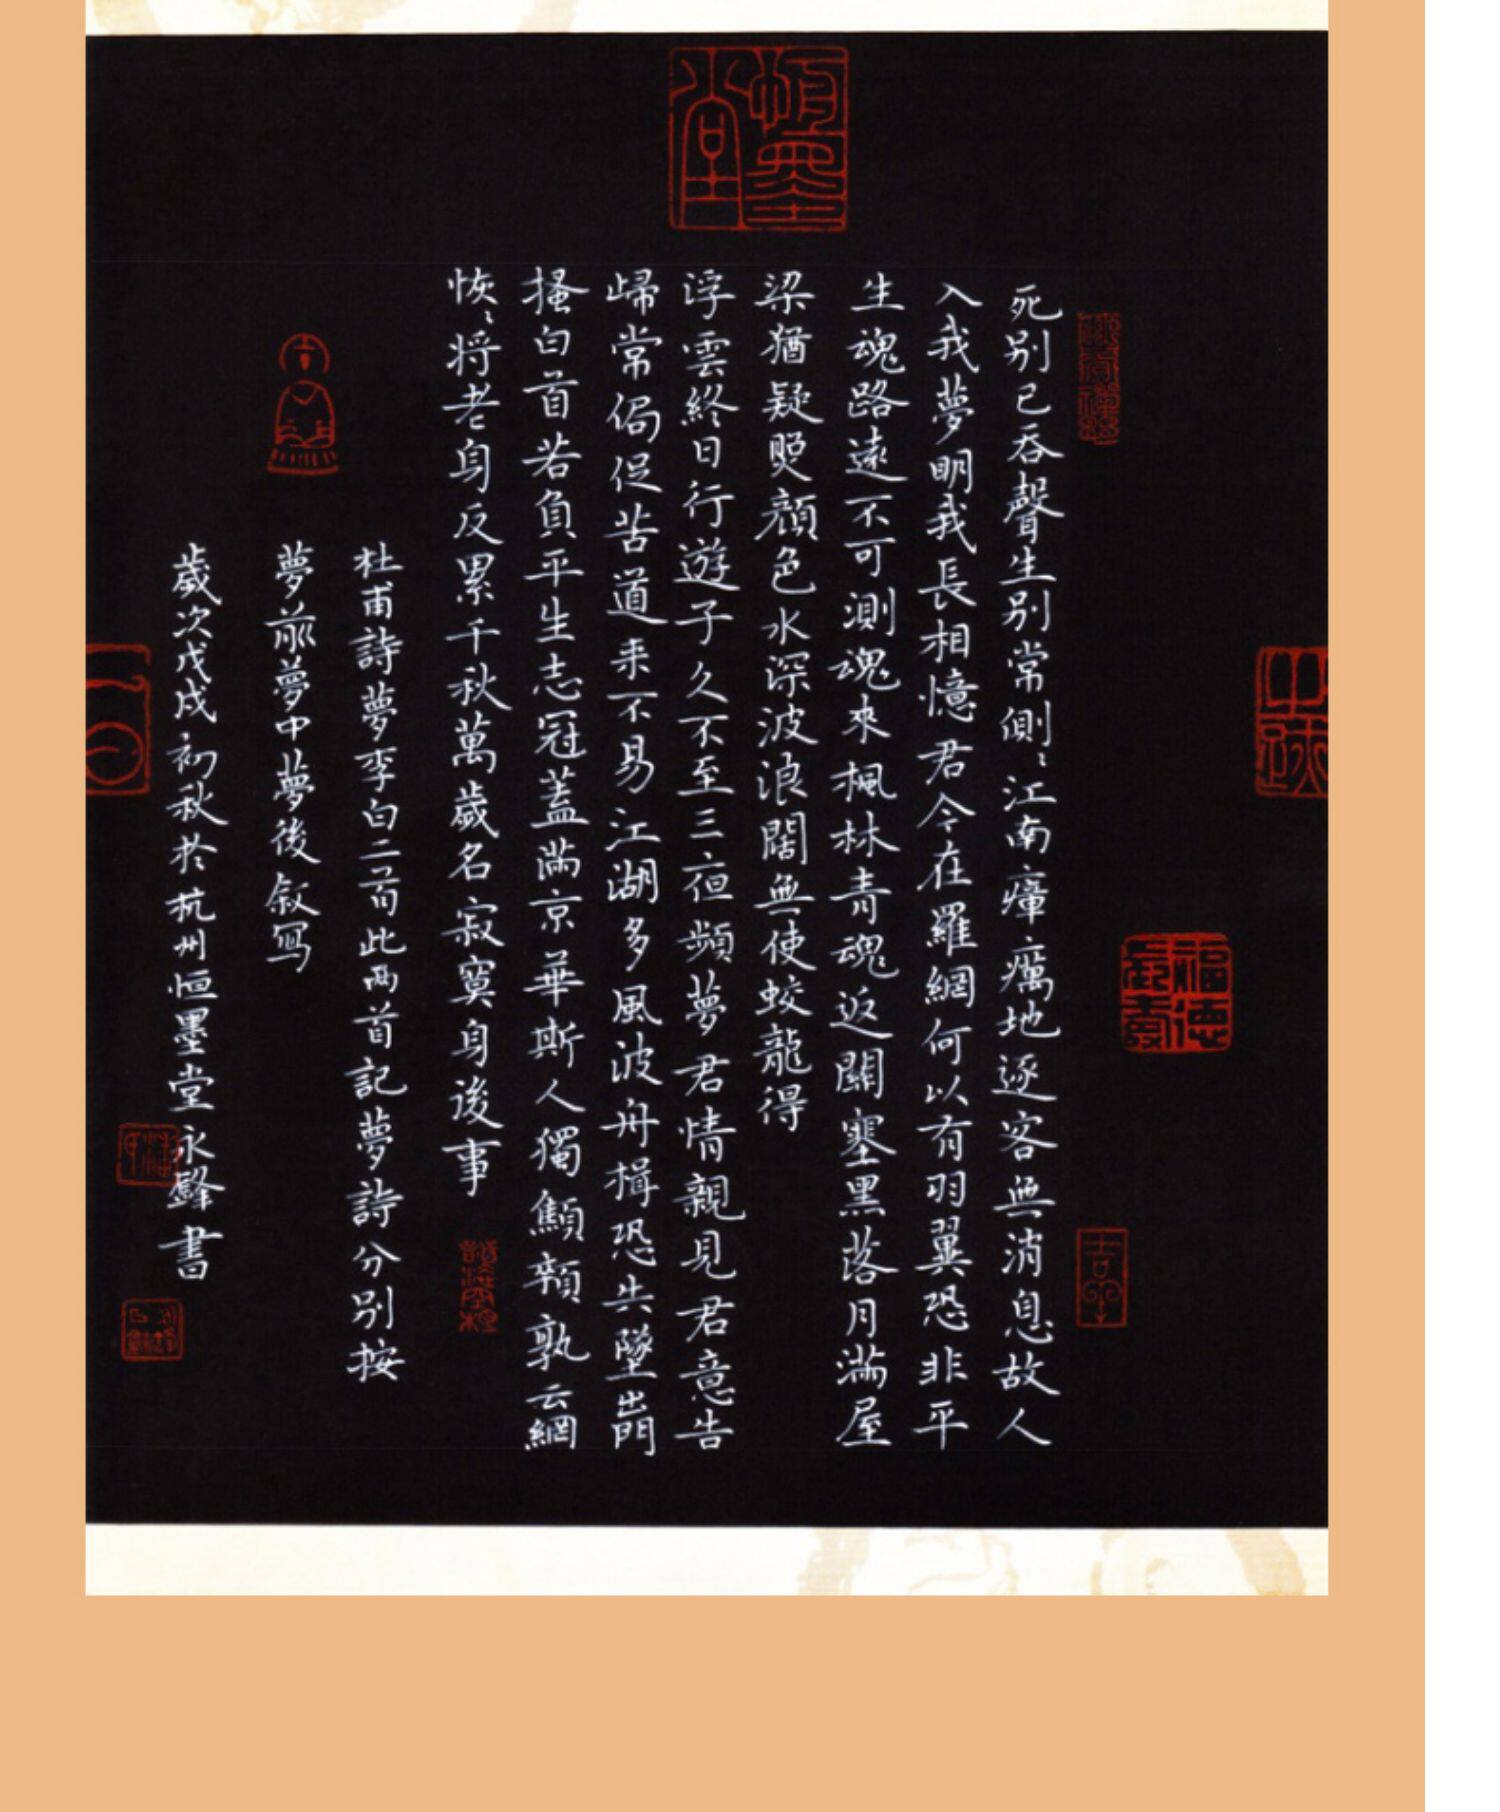 死别已吞聲生别常側〻江南瘴癘地逐客無消息故人
入我夢明我長相憶君今在羅網何以有羽翼恐非平
生魂路遠不可測魂來楓林青魂返關塞黑落月滿屋
梁猶疑照顔色水深波浪闊無使蛟龍得
浮雲終日行遊子久不至三夜頻夢君情親見君意告
歸常侷促苦道来不易江湖多風波舟楫恐失墜出門
搔白首若負平生志冠蓋滿京華斯人獨顦顇孰云網
恢〻将老身反累千秋萬歲名寂寞身後事
杜甫詩夢李白二首此兩首記夢詩分别按
夢前夢中夢後叙写
歲次戊戌初秋於杭州恒墨堂永鋒書
恒墨堂
福德長壽